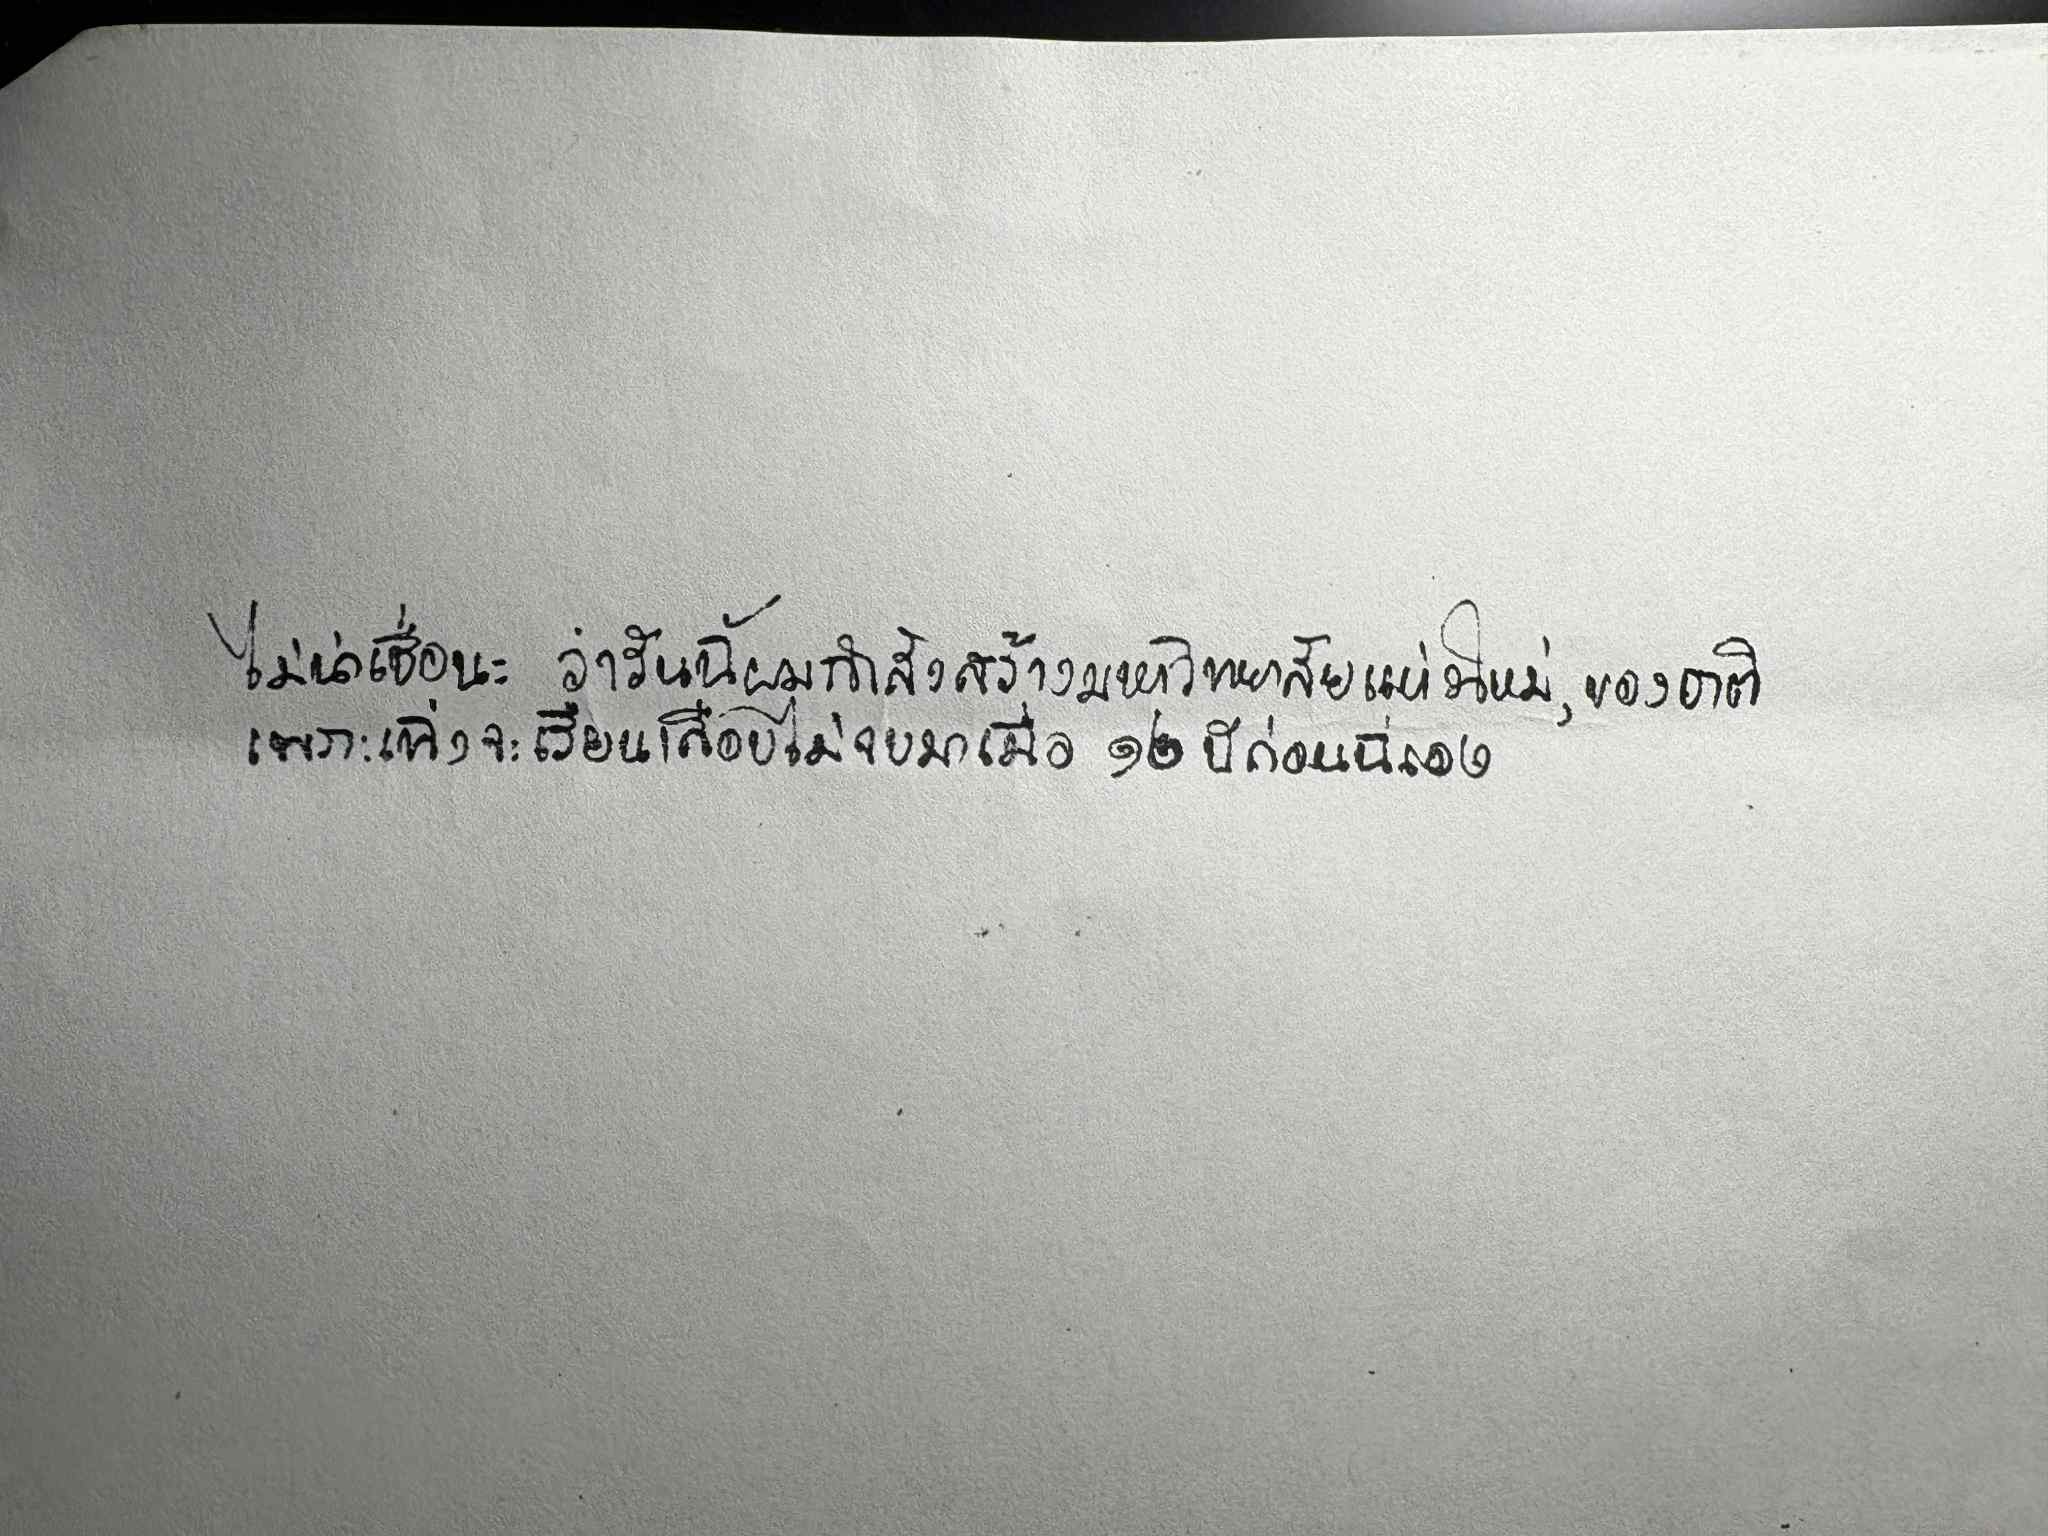 ไม่น่าเชื่อนะ ว่าวันนี้ผมกำลังสร้างมหาวิทยาลัยแห่งใหม่, ของชาติ
เพราะเพิ่งจะเรียนเกือบไม่จบมาเมื่อ ๑๒ ปีก่อนนี่เอง